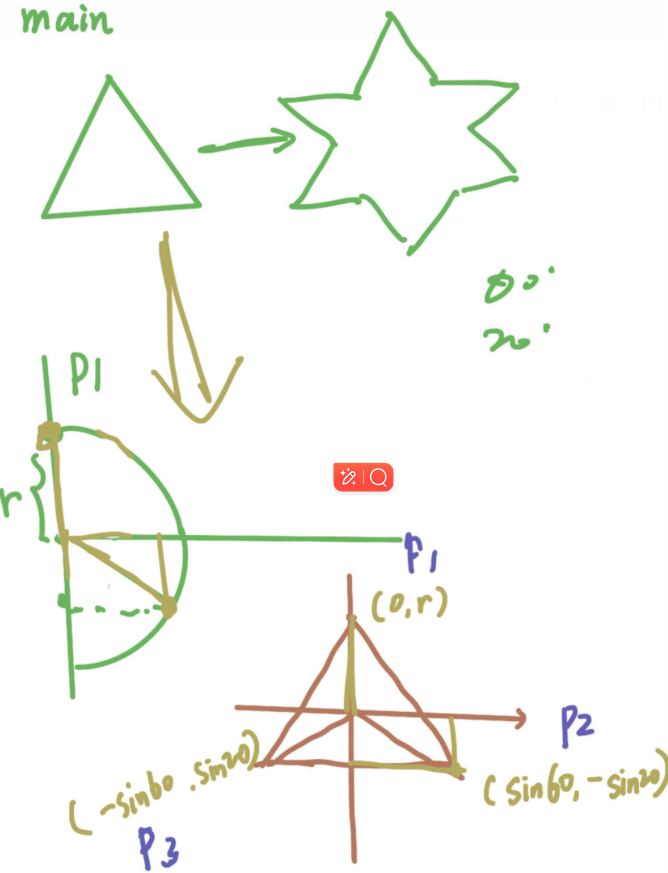 main
P1
r
P1
(0,r)
P2
(-sin60,sin20)
(sin60,-sin20)
P3